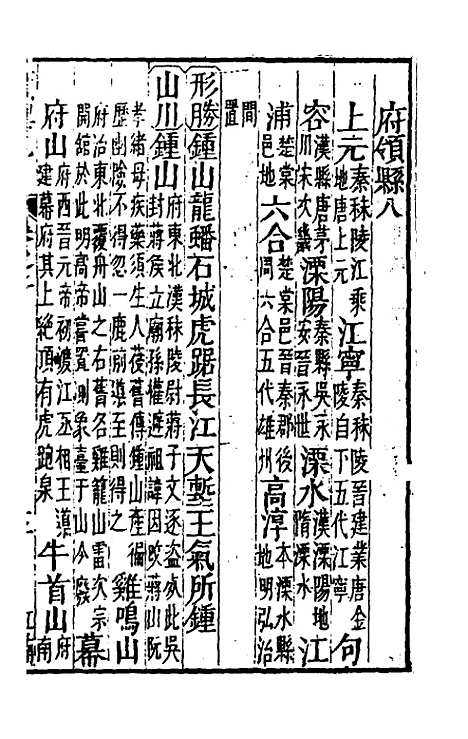 府領縣八
上元秦秣陵江乘地唐上元江寧秦秣陵晉建業唐金陵自下五代江寧句
容漢縣唐茅川宋次畿溧陽秦縣吳永安晉永世溧水漢溧陽地隋溧水江
浦楚棠邑地六合楚棠邑晉秦郡後周六合五代雄州高淳本溧水縣地明弘治
間置
形勝鍾山龍蟠石城虎踞長江天塹王氣所鍾
山川鍾山府東北漢秣陵尉蔣子文逐盜死此吳封蔣侯立廟孫權避祖諱因改蔣山阮
孝緒母疾藥須生人葠舊傳鍾山產徧歷幽險不得忽一鹿前導至則得之雞鳴山
府治東北覆舟山之右舊名雞籠山雷次宗開館於此明高帝嘗置測象臺于山今廢幕
府山府西晉元帝初渡江丞相王導建幕府其上絕頂有虎跑泉牛首山府南